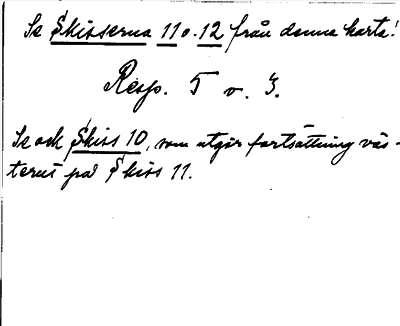 Se Skisserna 11 o. 12 från denna karta!
Resp. 5 o. 3.
Se ock Skiss 10, som utgör fortsättning väs-
terut på Skiss 11.